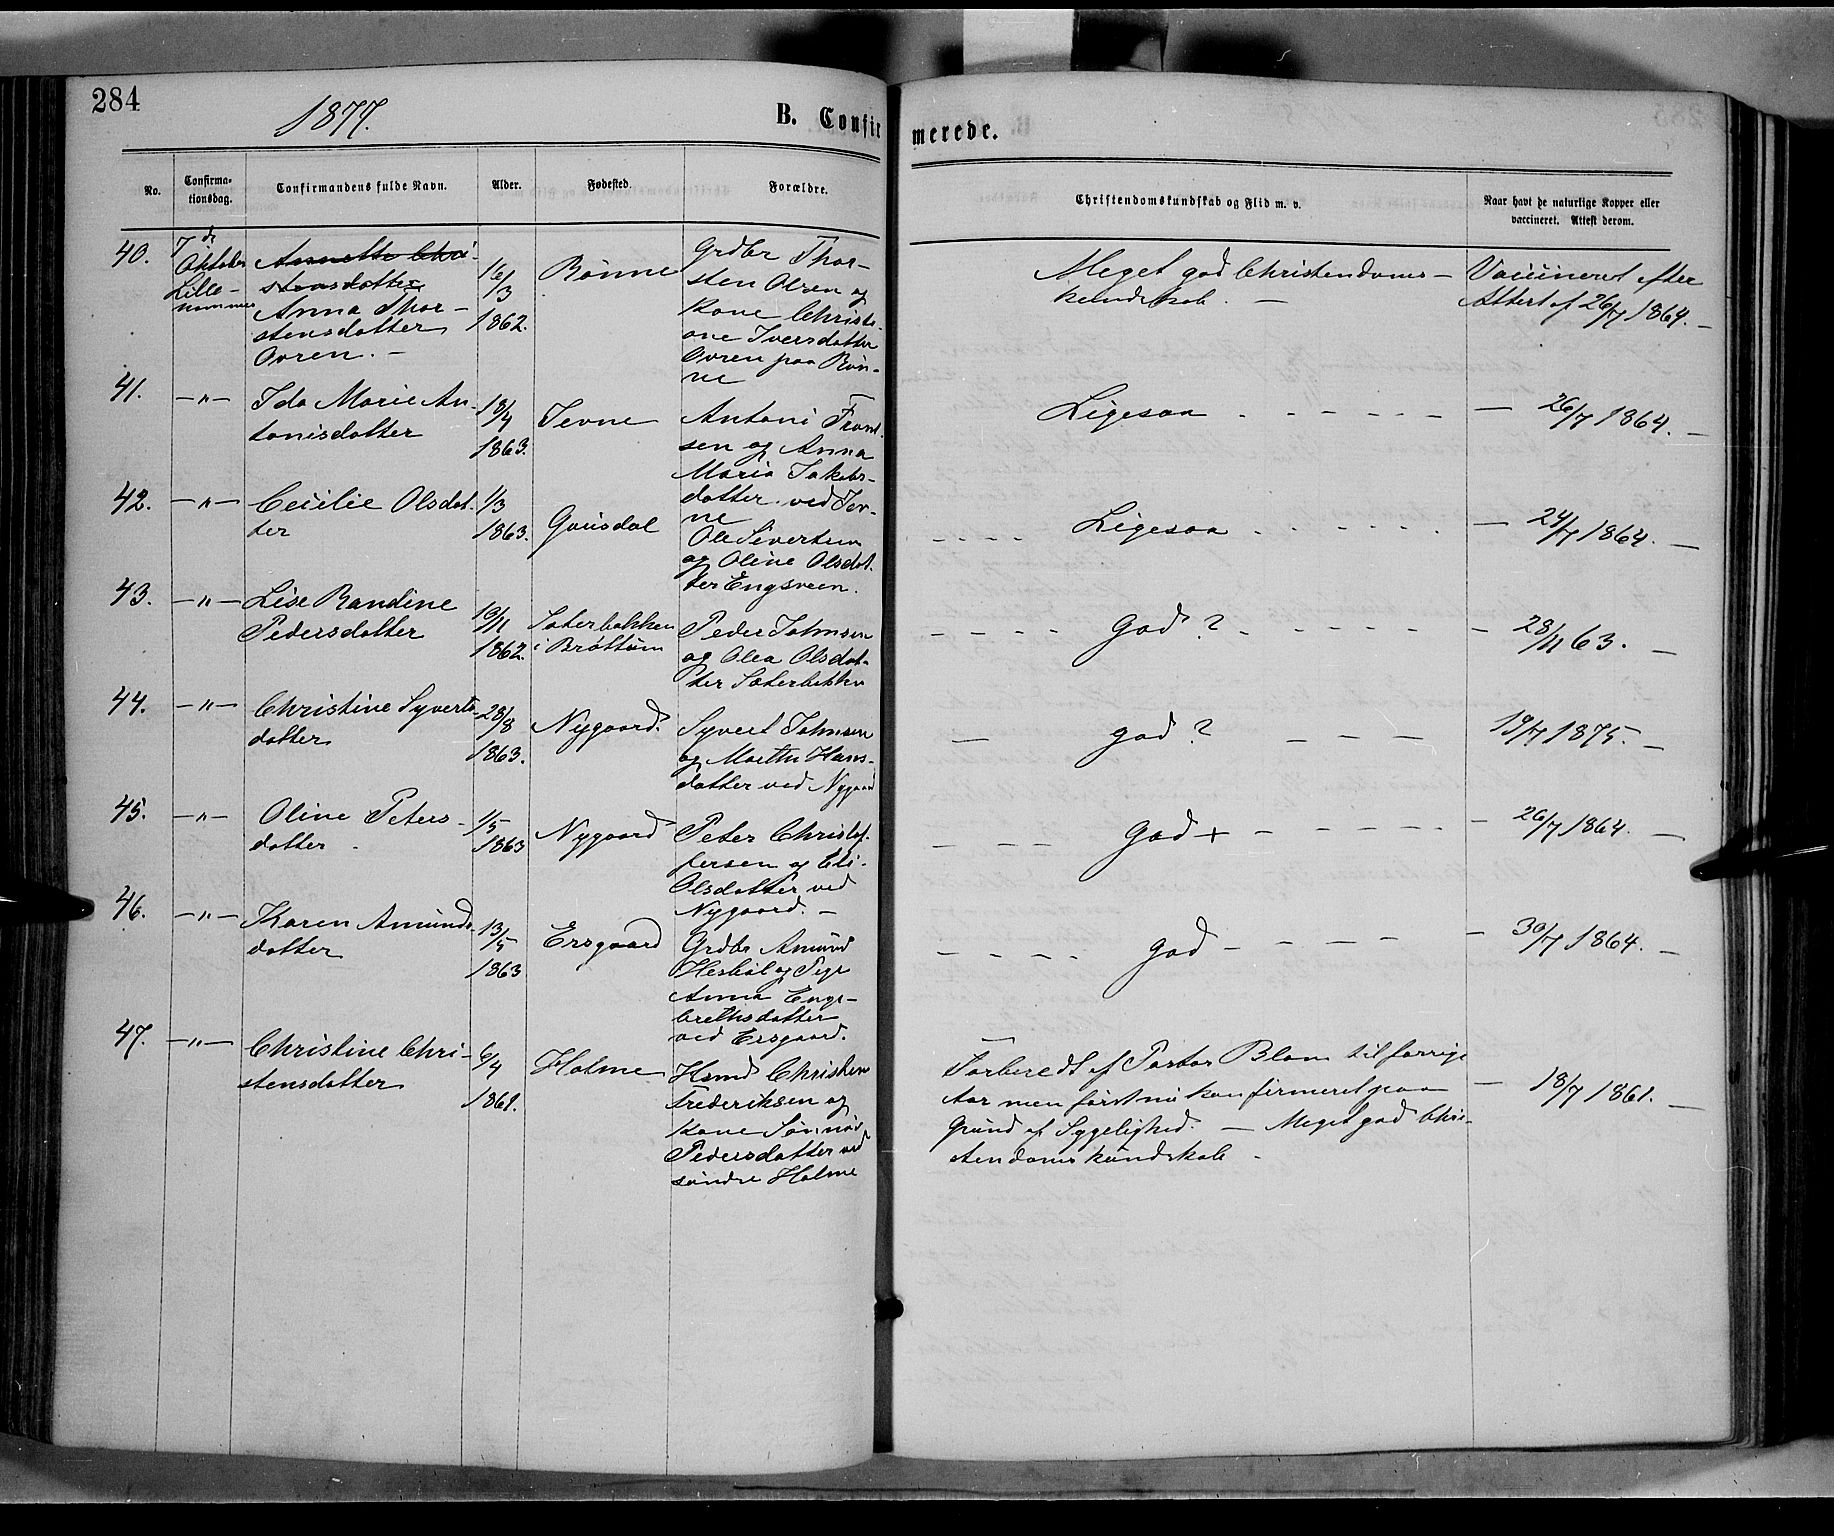 284
1877.
B. Confir
merede.
No.
Confirma-
tionsdag.
Confirmandens fulde Navn.
Alder.
Fødested.
Forældre.
Christendomskundskab og Flid m. v.
Naar havt de naturlige Kopper eller
vaccineret. Attest derom.
40.
7de
Oktober
Lille-
hammer
Annette Chri-
stensdatter
Anna Thor-
stensdatter
Ovren. –
16/3
1862.
Rönne
Grdbr Thor-
sten Olsen og
Kone Christi-
ane Iversdatter
Ovren paa Rön-
ne
Meget god Christendoms-
kundskab. –
Vaccineret efter
Attest af 26/7 1864. –
41.
–"–
Ida Marie An-
tonisdatter
18/4
1863.
Jevne
Antoni Frant-
sen og Anna
Maria Jakobs-
datter ved Jev-
ne
Ligesaa
26/7 1864. –
42.
–"–
Cecilie Olsdat-
ter
1/3
1863.
Gausdal
Ole Sivertsen
og Oline Olsdat-
ter Engsveen.
Ligesaa
24/7 1864. –
43.
–"–
Lise Randine
Pedersdatter
13/11
1862.
Sæterbakken
i Brøttum
Peder Johnsen
og Olea Olsdat-
ter Sæterbakken
god?
28/11 63. –
44.
–"–
Christine Syverts-
datter
28/8
1863.
Nygaard.
Syvert Johnsen
og Marthe Hans-
datter ved Nygaard
god?
19/7 1875. –
45.
–"–
Oline Peters-
datter
1/5
1863
Nygaard
Peter Christof-
fersen og Eli
Olsdatter ved
Nygaard. –
God +
26/7 1864. –
46.
–"–
Karen Amunds-
datter
13/5
1863
Ersgaard
Grdbr Amund
og Pige
Anna Enge-
brethsdatter
ved Ersgaard.
god –
30/7 1864. –
47.
–"–
Christine Chri-
stensdatter
6/4
1861.
Holme
Hsmd Christen
Frederiksen og
Kone Sönnöv
Pedersdatter ved
söndre Holme
Forberedt af Pastor Blom til forrige
Aar men först nu konfirmeret paa
Grund af Sygelighed. – Meget god Chri-
stendomskundskab –
18/7 1861. –